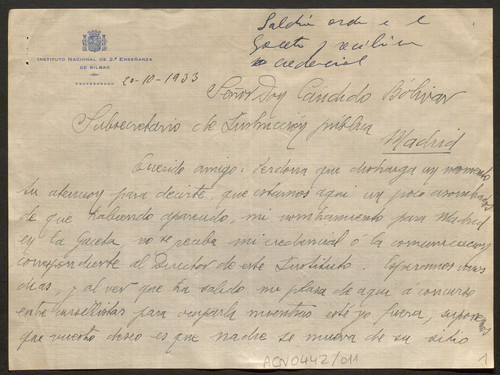 Saldrá orden
Gaceta y recibirá
credencial
INSTITUTO NACIONAL DE 2ª ENSEÑANZA
DE BILBAO
20-10-1933
Señor Don Candido Bólivar
Subsecretario de Instrucción pública
Madrid
Querido amigo: Perdona que distraiga un momento
tu atencion para decirte, que estamos aqui un poco asombrados
de que habiendo aparecido, mi nombramiento para Madrid
en la Gaceta, no se reciba mi credencial ó la comunicacion
correspondiente al Director de este Instituto. Esperamos unos
dias, y al ver que ha salido mi plaza de aqui á concurso
entre cursillistas para ocuparla mientras esté yo fuera, suponemos
que vuestro deseo es que nadie se mueva de su sitio
ACN0442/011
1